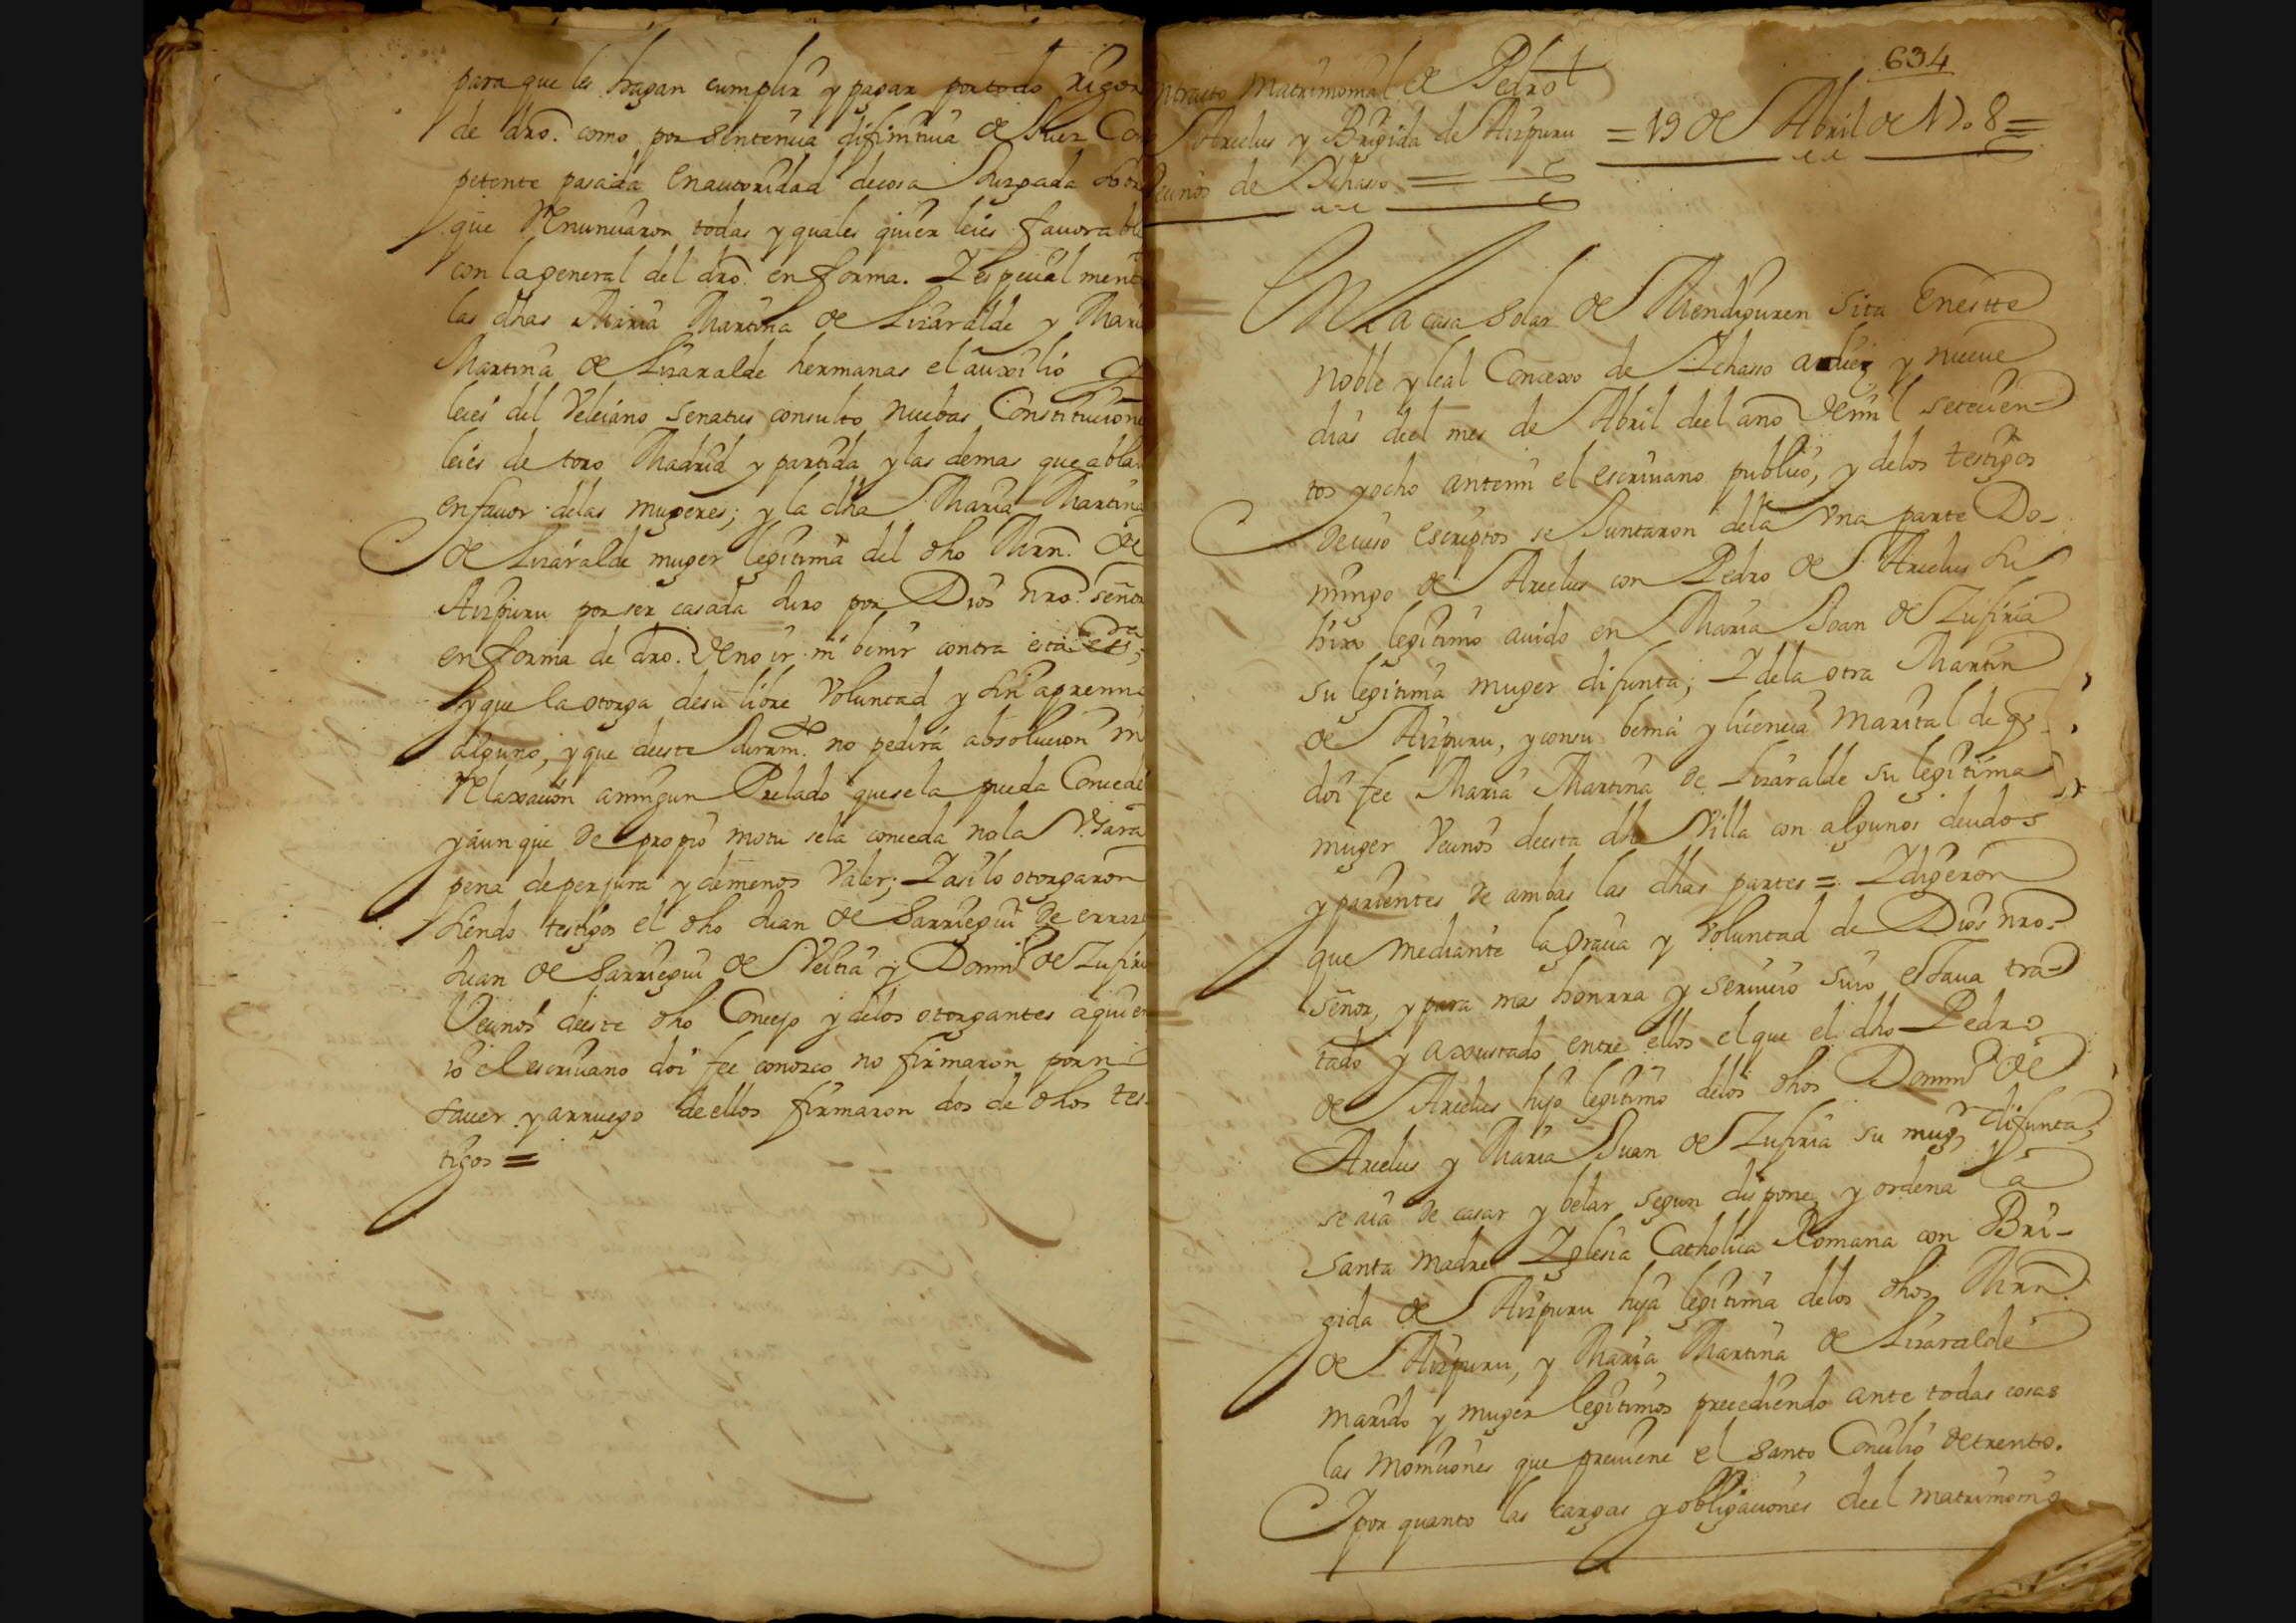 para que les hagan cumplir y pagar por todo rigor
de dro. como por sentencia difinitiua de Juez Con
petente pasada en autoridad de cosa Juzgada sobre
que Renunciaron todas y quales quier leies fauorable
con la general del dro. en forma. Y especial mente
las dhas Maria Martina de Lizaralde y Mari
Martina de Lizaralde hermanas el auxilio y
leies del Veleiano senatus consulto nuebas Constitucione
leies de toro Madrid y partida y las demas que ablan
en fauor delas mugeres; y la dha Maria Martina
de Lizaralde muger legitima del dho Mrn. de
Aizpuru por ser casada Juro por Dios nro. señor
en forma de dro. de no ir ni benir contra esta essra,
y que la otorga de su libre Voluntad y sin apremio
alguno, y que deeste Juramto. no pedirá absolucion ni
Relaxacion aningun Prelado quesela pueda Conceder
y aun que de propio motu sela conceda no la Vsara
pena de perjura y demenos Valer; Y asi lo otorgaron
siendo testigos el dho Juan de Sarriegui de errazt
Juan de Sarriegui de Veltia y Domin.º de Zufiria
Vecinos deeste dho Concejo y delos otorgantes aquien
io el escriuano doi fee conozco no firmaron por no
sauer y arruego deellos firmaron dos de dhos tes-
tigos =
634
ntrato Matrimonial de Pedro
de Arcelus y Brigida de Aizpuru = 19 de Abril de 1708 =
Vecinos de Ichasso =
En la casa solar de Mendiguren sita Eneste
noble y leal Concexo de Ichasso a diez y nueue
dias deel mes de Abril deel año de mil setecien-
tos y ocho antemi el escriuano publico, y delos testigos
de iuso escriptos se Juntaron dela Vna parte Do-
mingo de Arcelus con Pedro de Arcelus su
hixo legitimo auido en Maria Joan de Zufiria
su legitima muger difunta; Y dela otra Martin
de Aizpuru, y consu benia y licencia marital de q.
doi fee Maria Martina de Lizaralde su legitima
muger Vecinos deesta dha Villa con algunos deudos
y parientes de ambas las dhas partes = Y digeron
que mediante la gracia y Voluntad de Dios nro.
señor, y para mas honrra y seruicio suio estaua tra-
tado y axustado entre ellos el que el dho Pedro
de Arcelus hijo legitimo delos dhos Domin.º de
Arcelus y Maria Juan de Zufiria su mugr difunta,
se aia de casar y belar segun dispone, y ordena la
santa madre Yglesia Catholica Romana con Bri-
gida de Aizpuru hija legitima delos dhos Mrn.
de Aizpuru, y Maria Martina de Lizaralde
marido y muger legitimos precediendo ante todas cosas
las moniciones que preuiene el santo Concilio de trento.
Y por quanto las cargas y obligaciones deel matrimonio